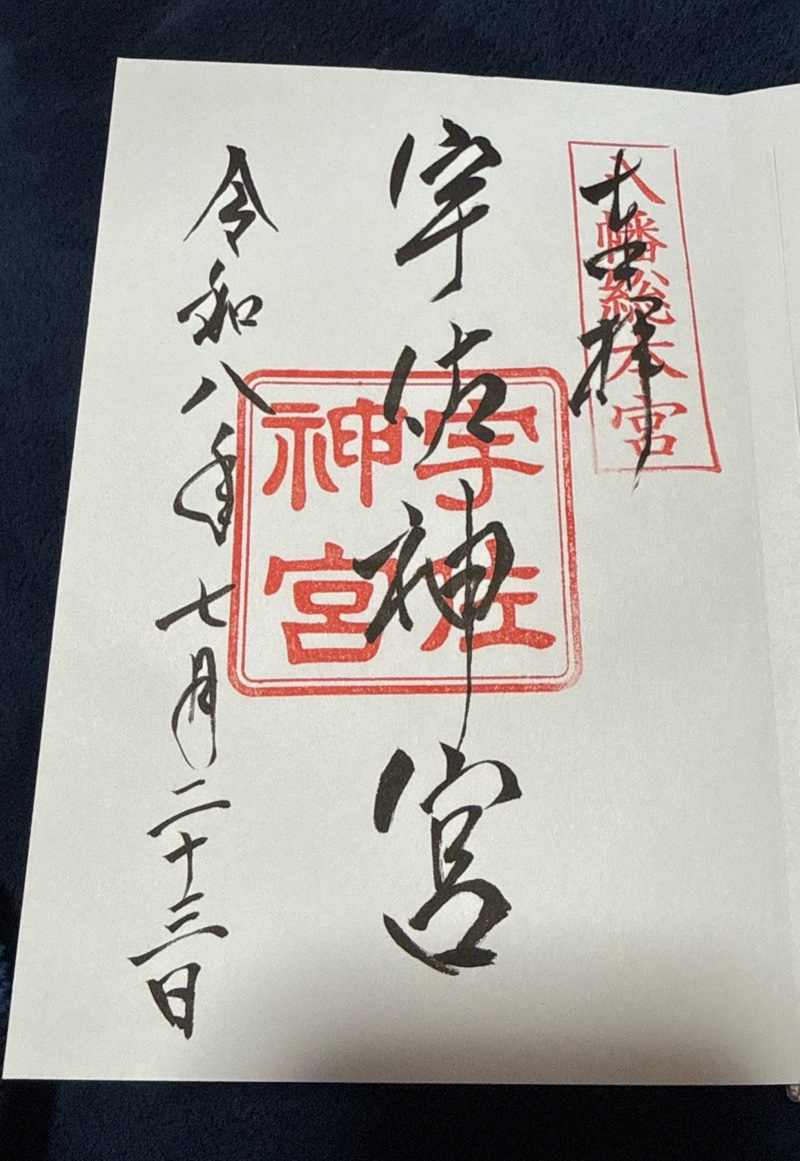 奉拝
八幡総本宮
宇佐神宮
宇佐
神宮
令和八年七月二十三日